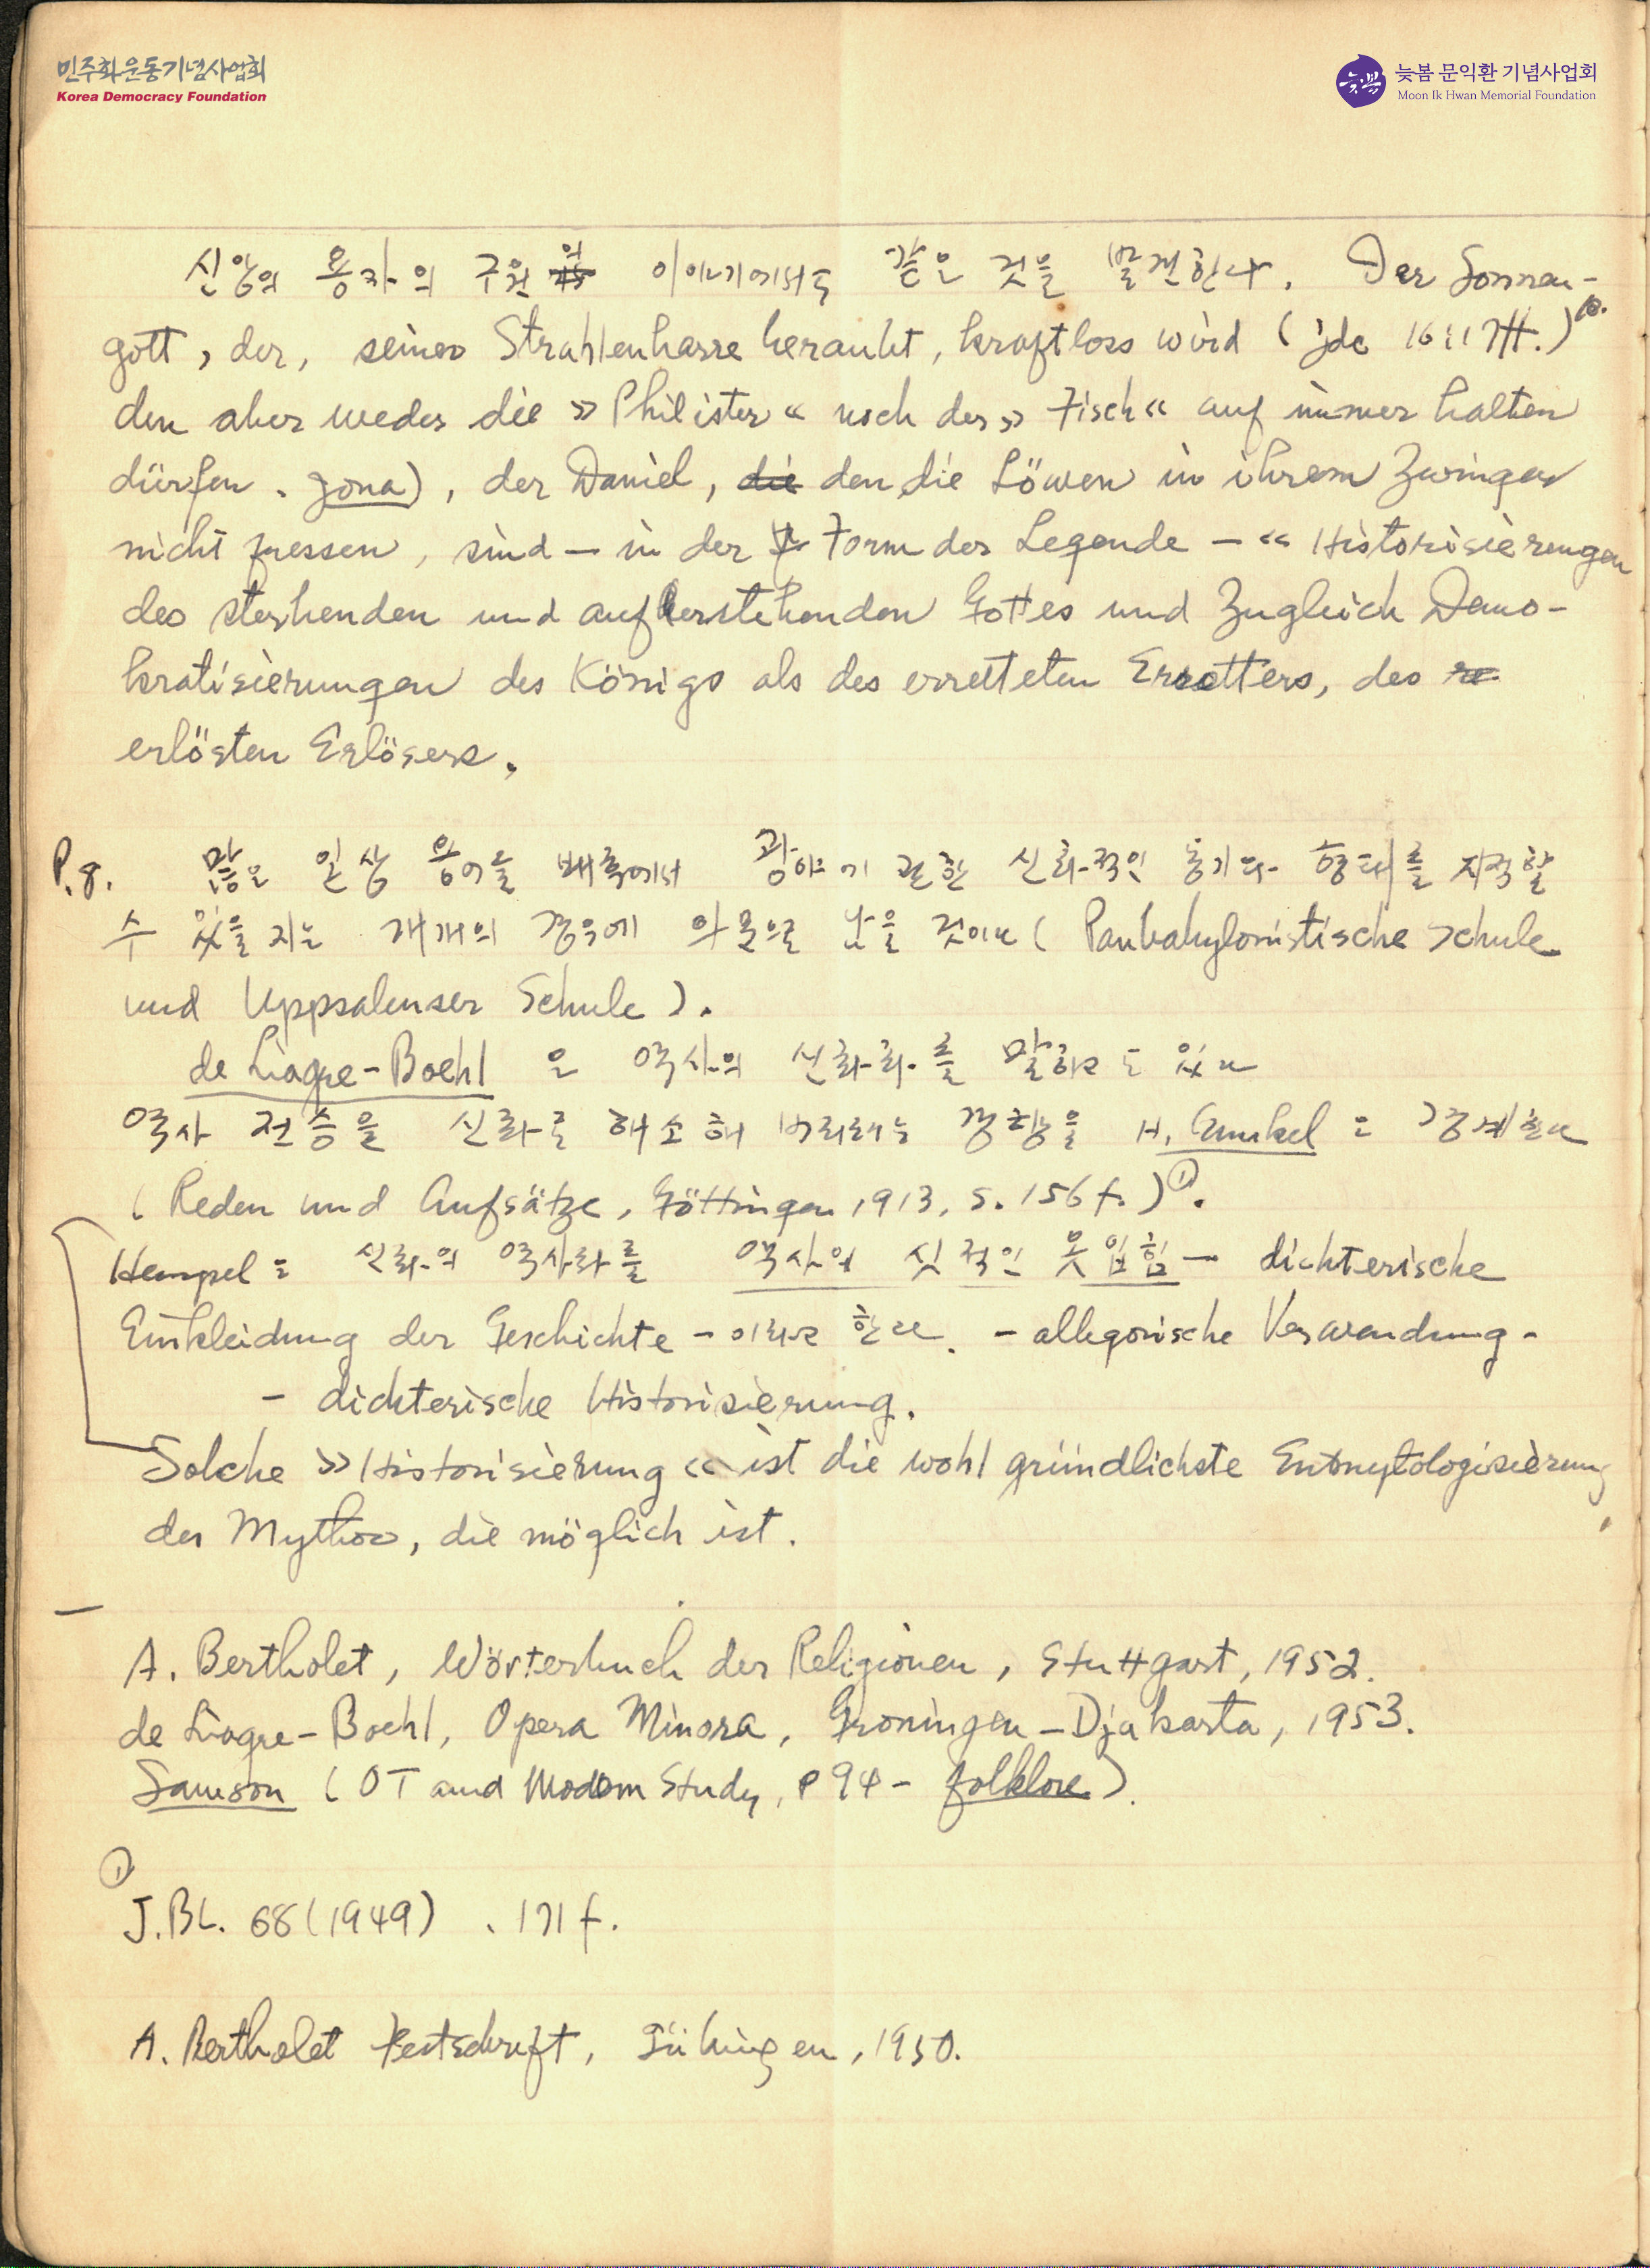 민주화운동기념사업회
Korea Democracy Foundation
늦봄 문익환 기념사업회
Moon Ik Hwan Memorial Foundation
신앙의 용자의 구원의 이야기에서도 같은 것을 발견한다. Der Sonnen-
gott, der, seines Strahlenhaare beraubt, kraftloss wird (jdc 16:17ff.)
den aber weder die »Philister« noch der »Fisch« auf immer halten
dürfen. Jona), der Daniel, die den die Löwen in ihrem Zwinger
nicht fressen, sind — in der Form der Legende — «Historisierungen
des sterbenden und auferstehenden Gottes und Zugleich Demo-
kratisierungen des Königs als des erretteten Erretters, des
erlösten Erlösers.
P.8. 많은 일상 용어들 배후에서 광야에 관한 신화적인 동기와 형태를 지적할
수 있을지는 개개의 경우에 의문으로 남을 것이다 (Panbabylonistische Schule
und Uppsalenser Schule).
de Liagre-Boehl 은 역사의 신화화를 말하고도 있다
역사 전승을 신화로 해소해 버리려는 경향을 H. Gunkel 도 경계한다
(Reden und Aufsätze, Göttingen 1913, S. 156 f.)①.
Hempel은 신화의 역사화를 역사의 싯적인 옷입힘 — dichterische
Einkleidung der Geschichte — 이라고 한다. — allegorische Verwendung -
— dichterische Historisierung.
Solche »Historisierung« ist die wohl gründlichste Entmytologisierung
des Mythos, die möglich ist.
A. Bertholet, Wörterbuch der Religionen, Stuttgart, 1952.
de Liagre-Boehl, Opera Minora, Groningen - Djakarta, 1953.
Samson (OT and Modern Study, P 94 - folklore).
①
J.BL. 68 (1949) . 171 f.
A. Bertholet Festschrift, Tübingen, 1950.